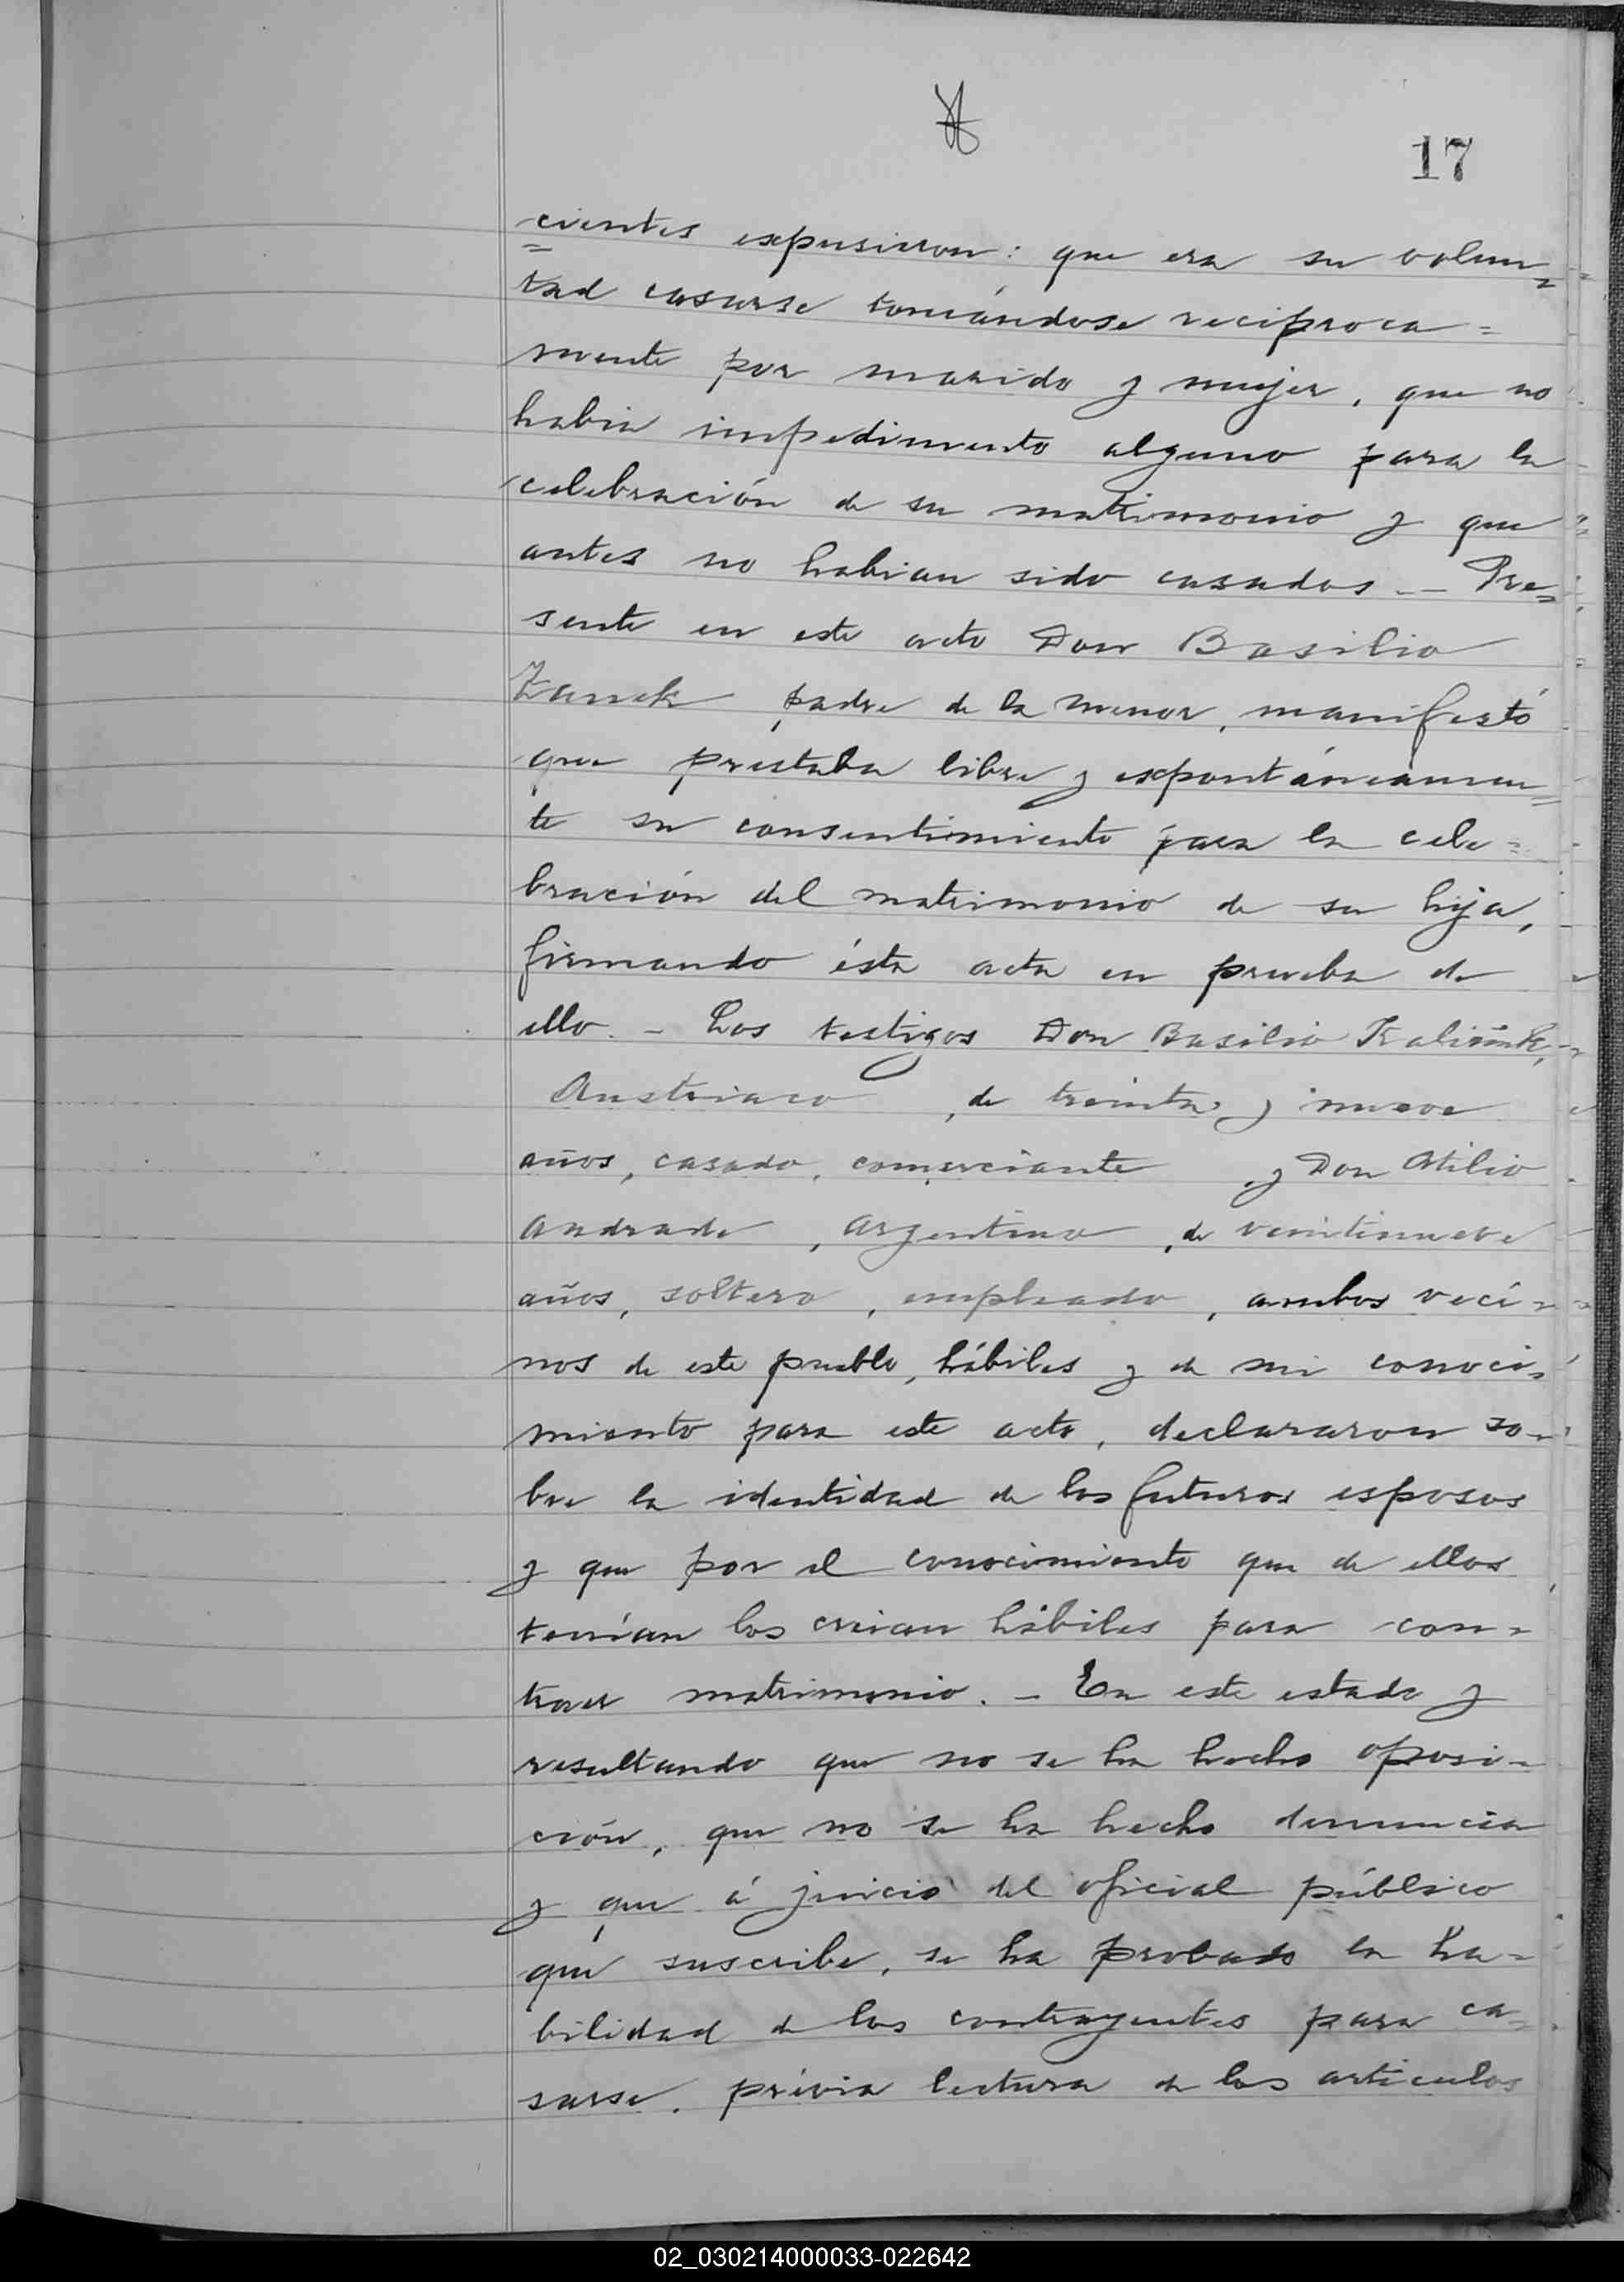 17
cientes expusieron: que era su volun=
tad casarse tomándose recíproca=
mente por marido y mujer, que no
habia impedimento alguno para la
celebración de su matrimonio y que
antes no habian sido casados.— Pre=
sente en este acto Don Basilio
padre de la menor, manifestó
que prestaba libre y expontáneamen=
te su consentimiento para la cele=
bración del matrimonio de su hija,
firmando ésta acta en prueba de
ello.— Los testigos Don Basilio
Austriaco, de treinta y nueve
años, casado, comerciante y Don Atilio
Andrade, argentino, de veintinueve
años, soltero, empleado, ambos veci=
nos de este pueblo, hábiles y de mi conoci=
miento para este acto, declararon so=
bre la identidad de los futuros esposos
y que por el conocimiento que de ellos
tenían los creian hábiles para con=
traer matrimonio.— En este estado y
resultando que no se ha hecho oposi=
ción, que no se ha hecho denuncia
y que á juicio del oficial público
que suscribe, se ha probado la ha=
bilidad de los contrayentes para ca=
sarse, prévia lectura de los artículos
02_030214000033-022642